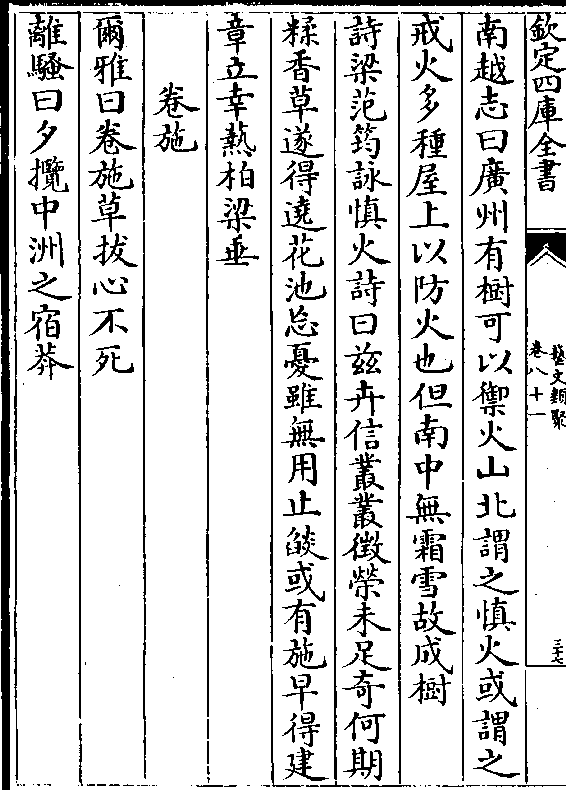 欽定四庫全書
藝文類聚
卷八十一
三十七
南越志曰廣州有樹可以禦火山北謂之慎火或謂之
戒火多種屋上以防火也但南中無霜雪故成樹
詩梁范筠詠慎火詩曰兹卉信叢叢徴榮未足奇何期
糅香草遂得遶花池忘憂雖無用止燄或有施早得建
章立幸熱柏梁垂
卷施
爾雅曰卷施草拔心不死
離騷曰夕攬中洲之宿莽